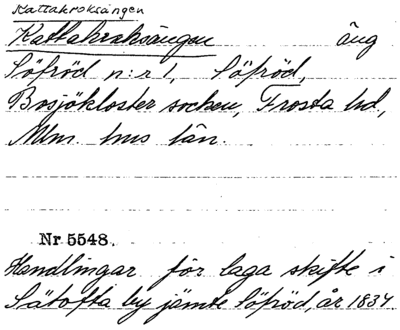 Kattakroksängen
Kattakraksängen äng
Söfröd n:r 1, Söfröd,
Bosjökloster socken, Frosta hd,
Mlm. hus län.
Nr 5548.
Handlingar för laga skifte i
Sätofta by jämte Söfröd, år 1834